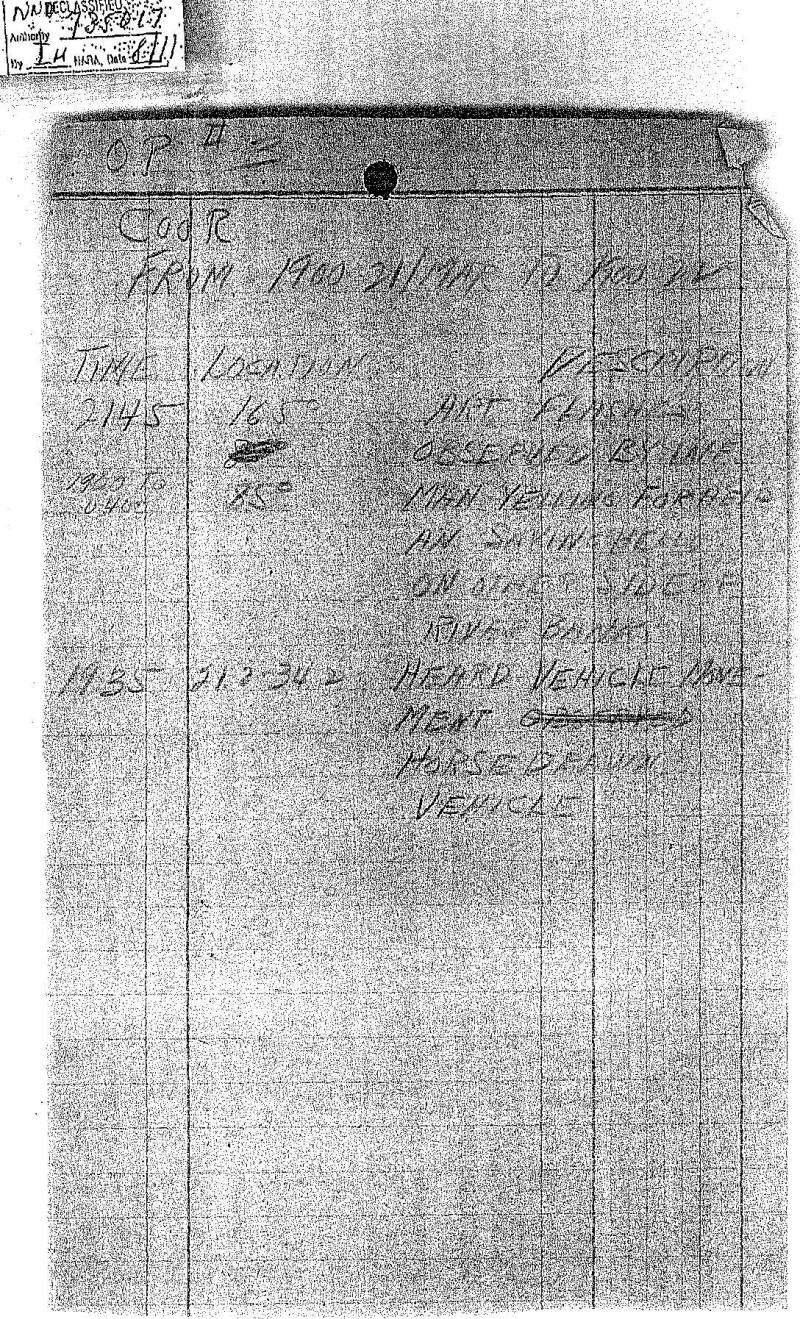 DECLASSIFIED
Authority NND 735017
By IH NARA, Date 8/11
OP #
COOR
FROM 1900 21/MAR TO 1900 22
TIME LOCATION DESCRIPTION
2145 165° ART FLASHES
OBSERVED BY
1900 TO 0400 85° MAN YELLING FOR HELP
AN SAYING HELLO
ON OTHER SIDE OF
RIVER BANK
1935 212-342 HEARD VEHICLE MOVE-
MENT OBSERVED
HORSE DRAWN
VEHICLE